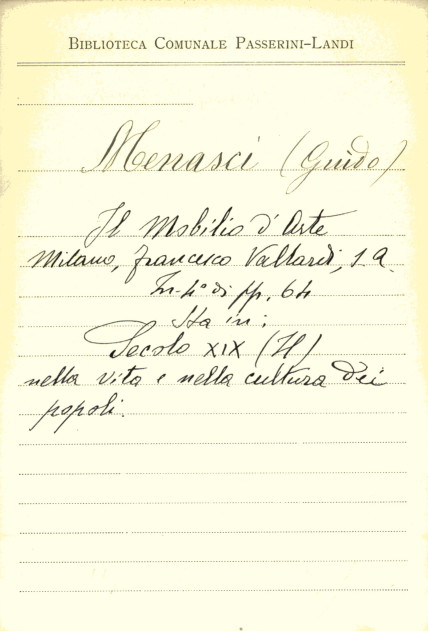 BIBLIOTECA COMUNALE PASSERINI-LANDI
Menasci (Guido)
Il Mobilio d'Arte
Milano, Francesco Vallardi, s.a.
In-4° di pp. 64
Sta in:
Secolo XIX (Il)
nella vita e nella cultura dei
popoli.